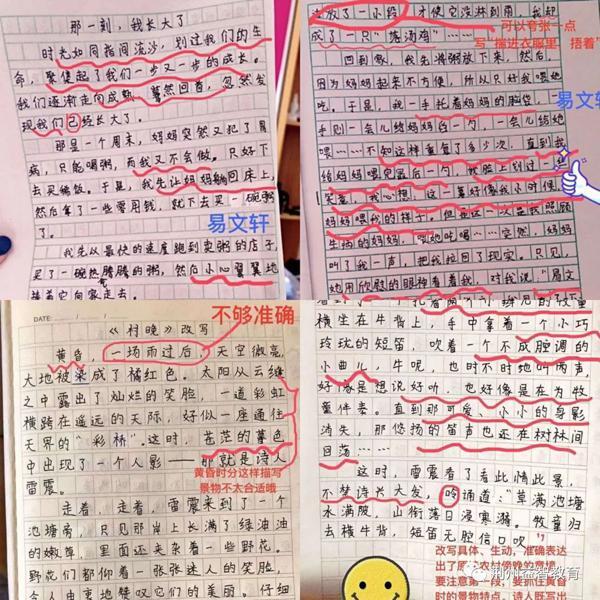 那一刻，我长大了
时光如同指间流沙，划过我们的生
命，聚集起了我们一步又一步的成长。
我们逐渐走向成熟，蓦然回首，忽然发
现我们已经长大了。
那是一个周末，妈妈突然又犯了胃
病，只能喝粥，而我又不会做。只好下
去买稀饭。于是，我先让妈妈躺回床上，
然后拿了一些零用钱，就下去买一碗粥
了。
易文轩
我先以最快的速度跑到卖粥的店子，
买了一碗热腾腾的粥，然后小心翼翼地
捧着它向家走去。
放了一小段，才使它没淋到雨，我却
成了一只“落汤鸡”……
可以夸张一点
写“揣进衣服里，捂着”
回到家，我先将粥放下来，然后，
因为妈妈起来不方便，所以只好我喂她
吃。于是，我一手托着妈妈的脸袋，
易文轩
手则一会儿给妈妈舀一勺，一会儿给她
喂……不知这样重复了多少次，直到我
给妈妈喂完最后一勺，我脸上划过一丝
笑意，我心想，这一幕好像我小时候，
妈妈喂我的样子。但是这一次是我照顾
生病的妈妈，喂她吃喝……突然，妈妈
叫了我一声，把我拉回了现实。只见，
她用欣慰的眼神看着我，对我说，“易文
DATE
不够准确
《村晚》改写
黄昏，一场雨过后，天空微亮，
大地被染成了橘红色。太阳从云缝
之中露出了灿烂的笑脸，一道彩虹
横跨在遥远的天际，好似一座通往
天界的“彩桥”。这时，苍茫的暮色
中出现了一个人影——那就是诗人
雷震。
黄昏时分这样描写
景物不太合适哦
走着，走着，雷震来到了一个
池塘旁，只见那岸上长满了绿油油
的嫩草，里面还夹杂着一些野花。
野花们都仰着一张张迷人的笑脸，
令人由衷地赞叹它们的美丽。仔细
横坐在牛背上，手中拿着一个小巧
玲珑的短笛，吹着一个不成腔调的
小曲儿，牛呢，也时不时地叫两声，
好像是想说好听，也好像是在为牧
童伴奏。直到那可爱、小小的身影
消失，那悠扬的笛声也还在树林间
回荡……
这时，雷震看了看此情此景，
不禁诗兴大发，吟诵道：“草满池塘
水满陂，山衔落日浸寒漪。牧童归
去横牛背，短笛无腔信口吹。”
改写具体、生动，准确表达
出了原诗农村傍晚的意境，
要注意第一段，要抓住黄昏
时的景物特点，诗人既写出
荆州益智教育